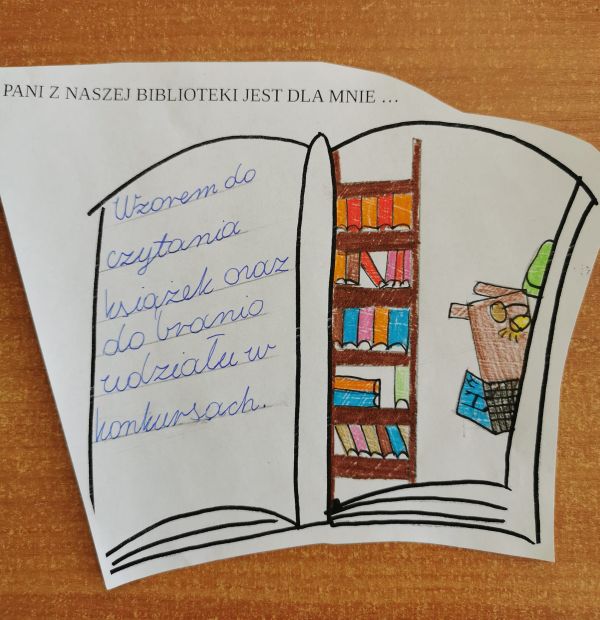 PANI Z NASZEJ BIBLIOTEKI JEST DLA MNIE ...
Wzorem do
czytania
książek oraz
do brania
udziału w
konkursach.